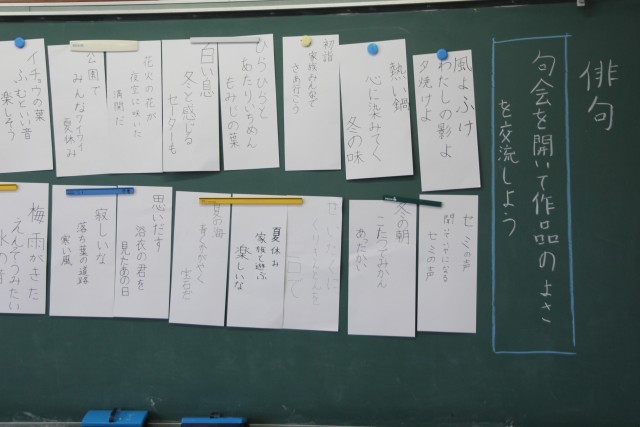 俳句
句会を開いて作品のよさ
を交流しよう
風よふけ
わたしの影よ
夕焼けよ
熱い鍋
心に染みてく
冬の味
初詣
家族みんなで
さあ行こう
ひらひらと
あたりいちめん
もみじの葉
白い息
冬と感じる
セーターも
花火の花が
夜空に咲いた
満開だ
公園で
みんなワイワイ
夏休み
イチョウの葉
ふむといい音
楽しそう
セミの声
セミの声
冬の朝
こたつでみかん
あったかい
夏休み
家族で遊ぶ
楽しいな
宝石だ
思いだす
浴衣の君を
見たあの日
寂しいな
落ち葉の道路
寒い風
梅雨がきた